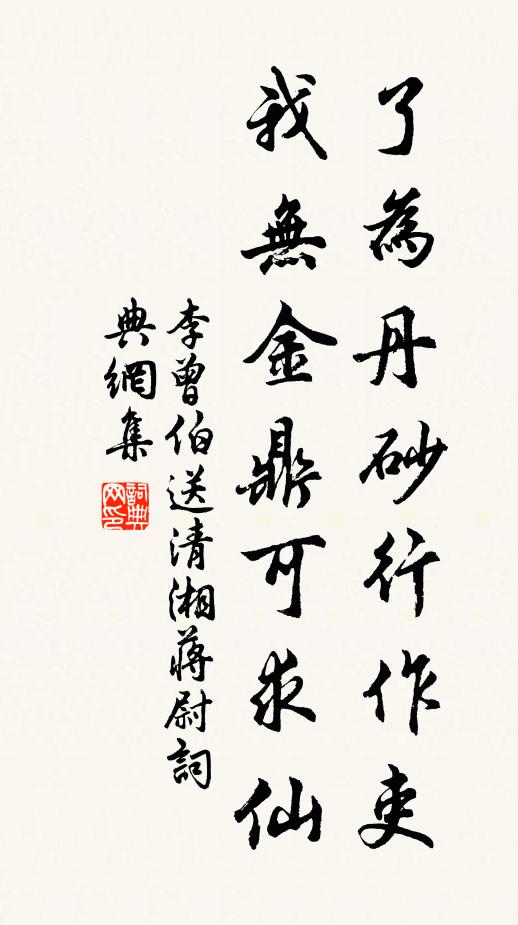 了為丹砂行作吏
我無金鼎可求仙
李曾伯送清湘蔣尉詞
典網集
詞典網印